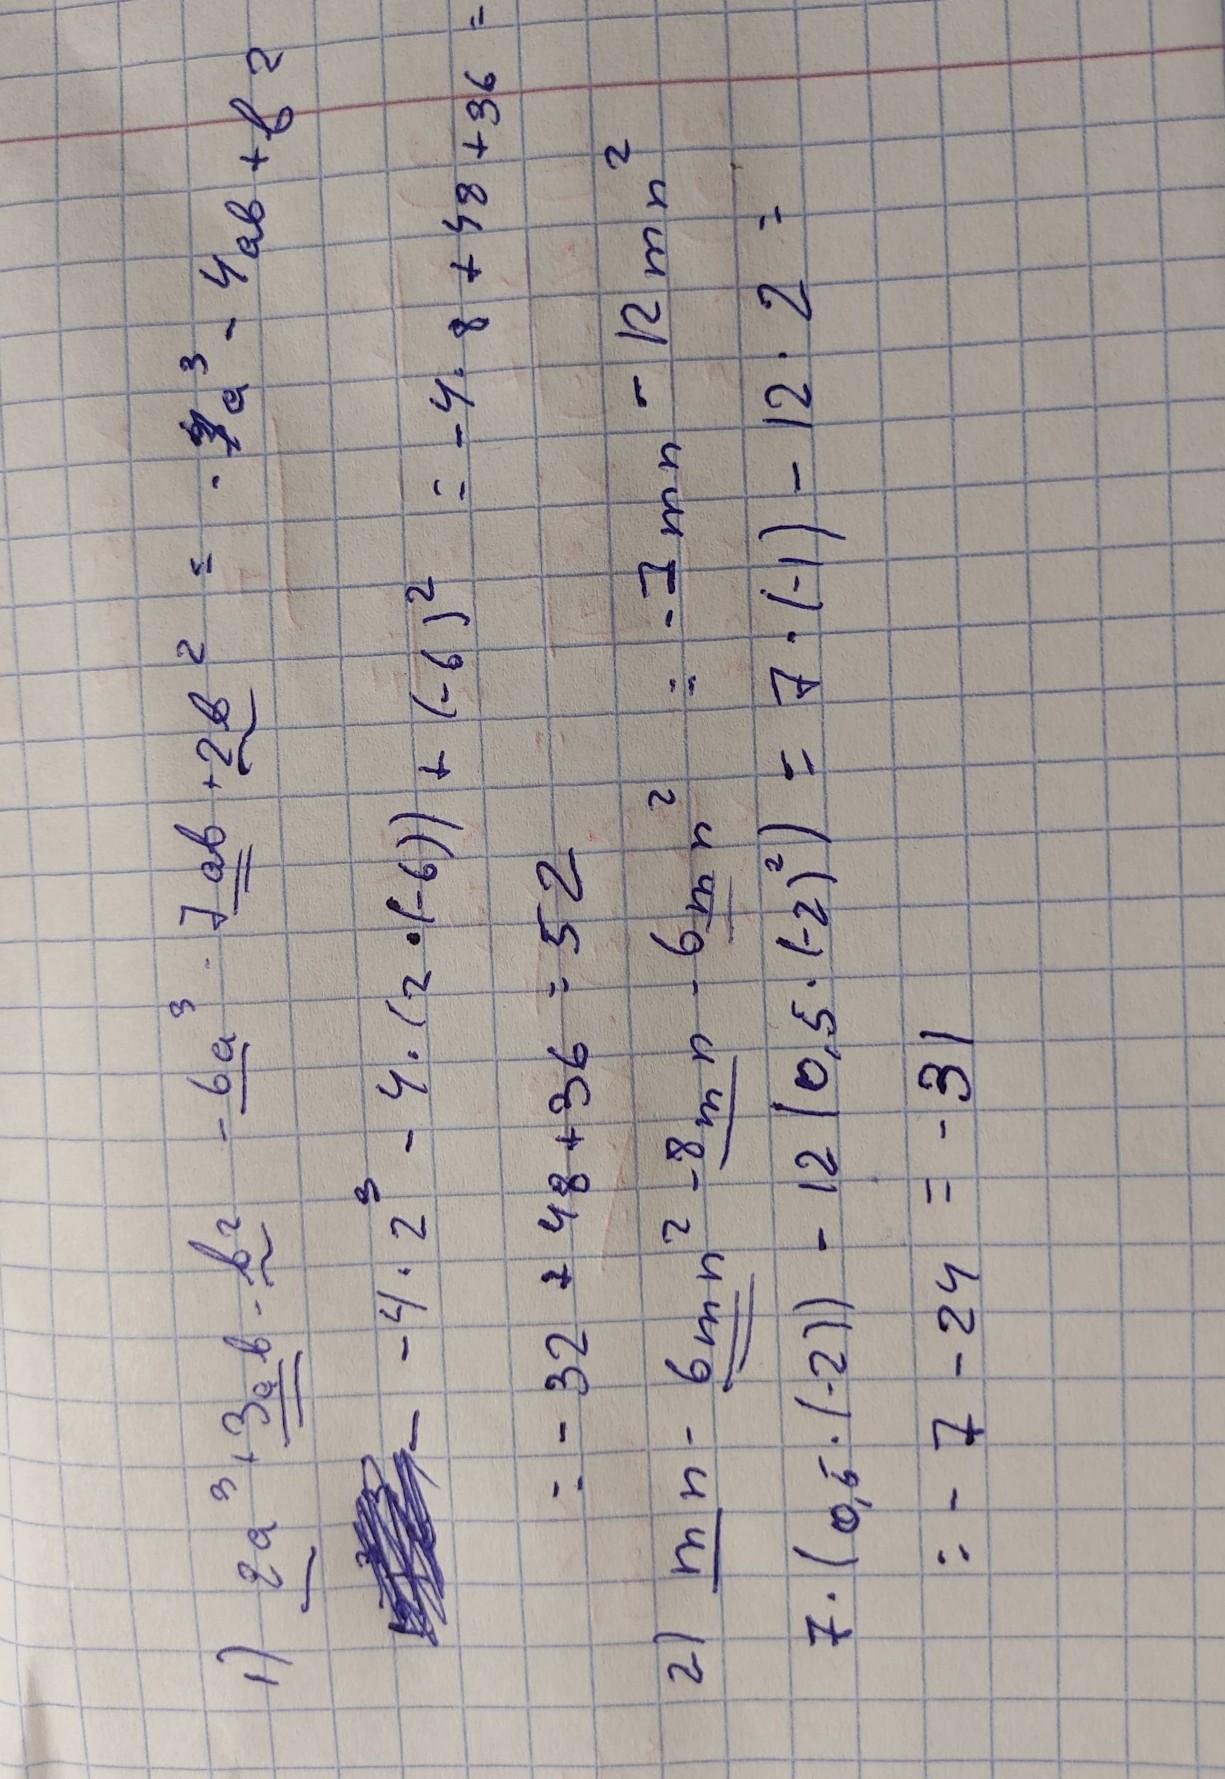 1) 2a³ + 3ab - b² - 6a³ - 7ab + 2b² = - 4a³ - 4ab + b²
- 4 · 2³ - 4 · (2 · (-6)) + (-6)² = - 4 · 8 + 48 + 36 =
= - 32 + 48 + 36 = 52
2) mn - 6mn² - 8mn - 6mn² = - 7mn - 12mn²
7 · (0,5 · (-2)) - 12 (0,5 · (-2)²) = 7 · (-1) - 12 · 2 =
= - 7 - 24 = - 31